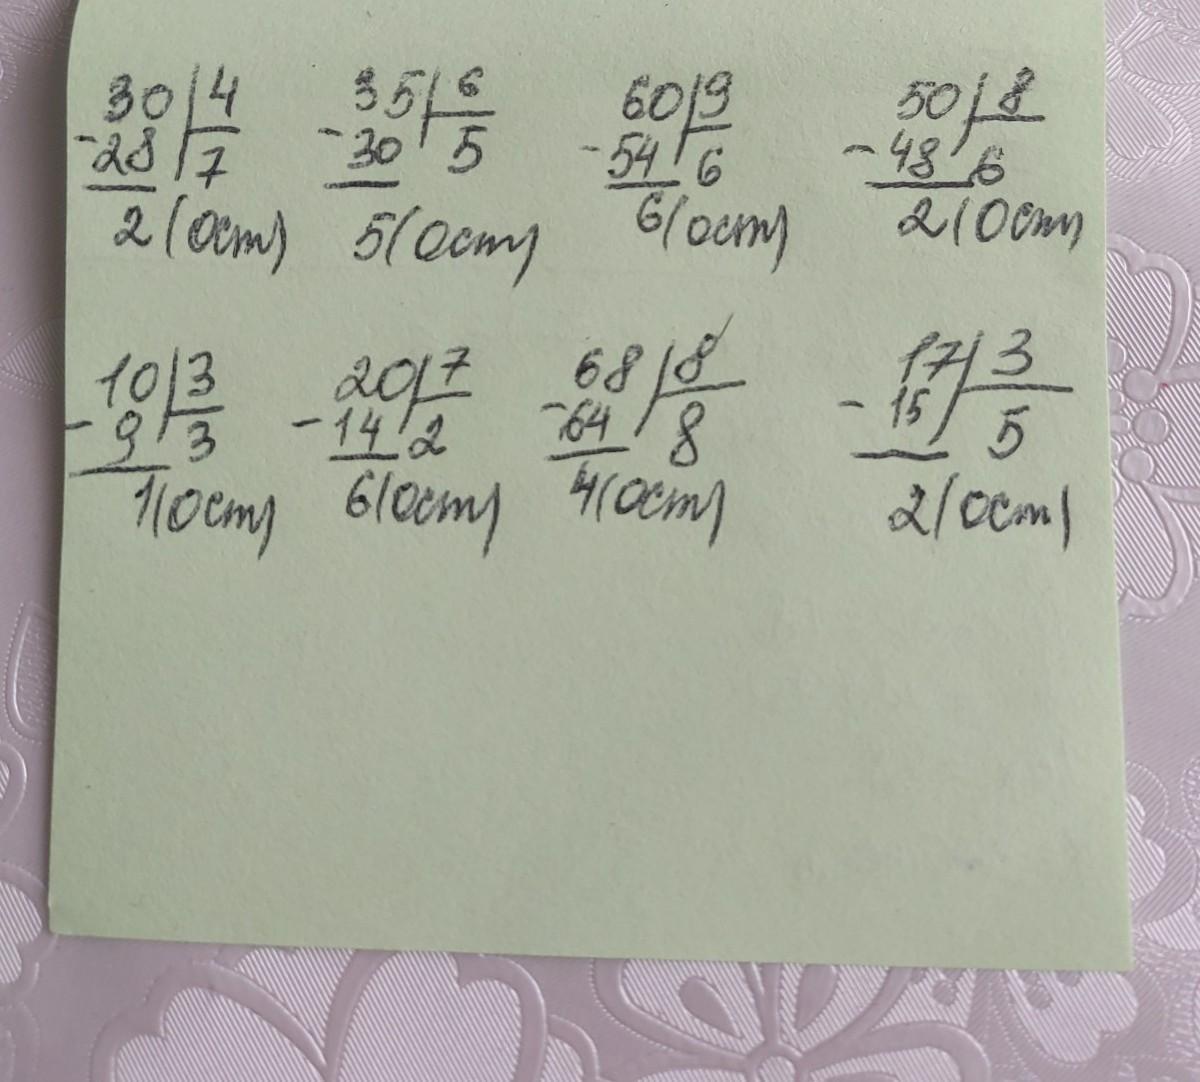 30 4 35 6 60 9 50 8
-28 7 -30 5 -54 6 -48 6
2 (Ост) 5 (Ост) 6 (Ост) 2 (Ост)
10 3 20 7 68 8 17 3
-9 3 -14 2 -64 8 -15 5
1 (Ост) 6 (Ост) 4 (Ост) 2 (Ост)